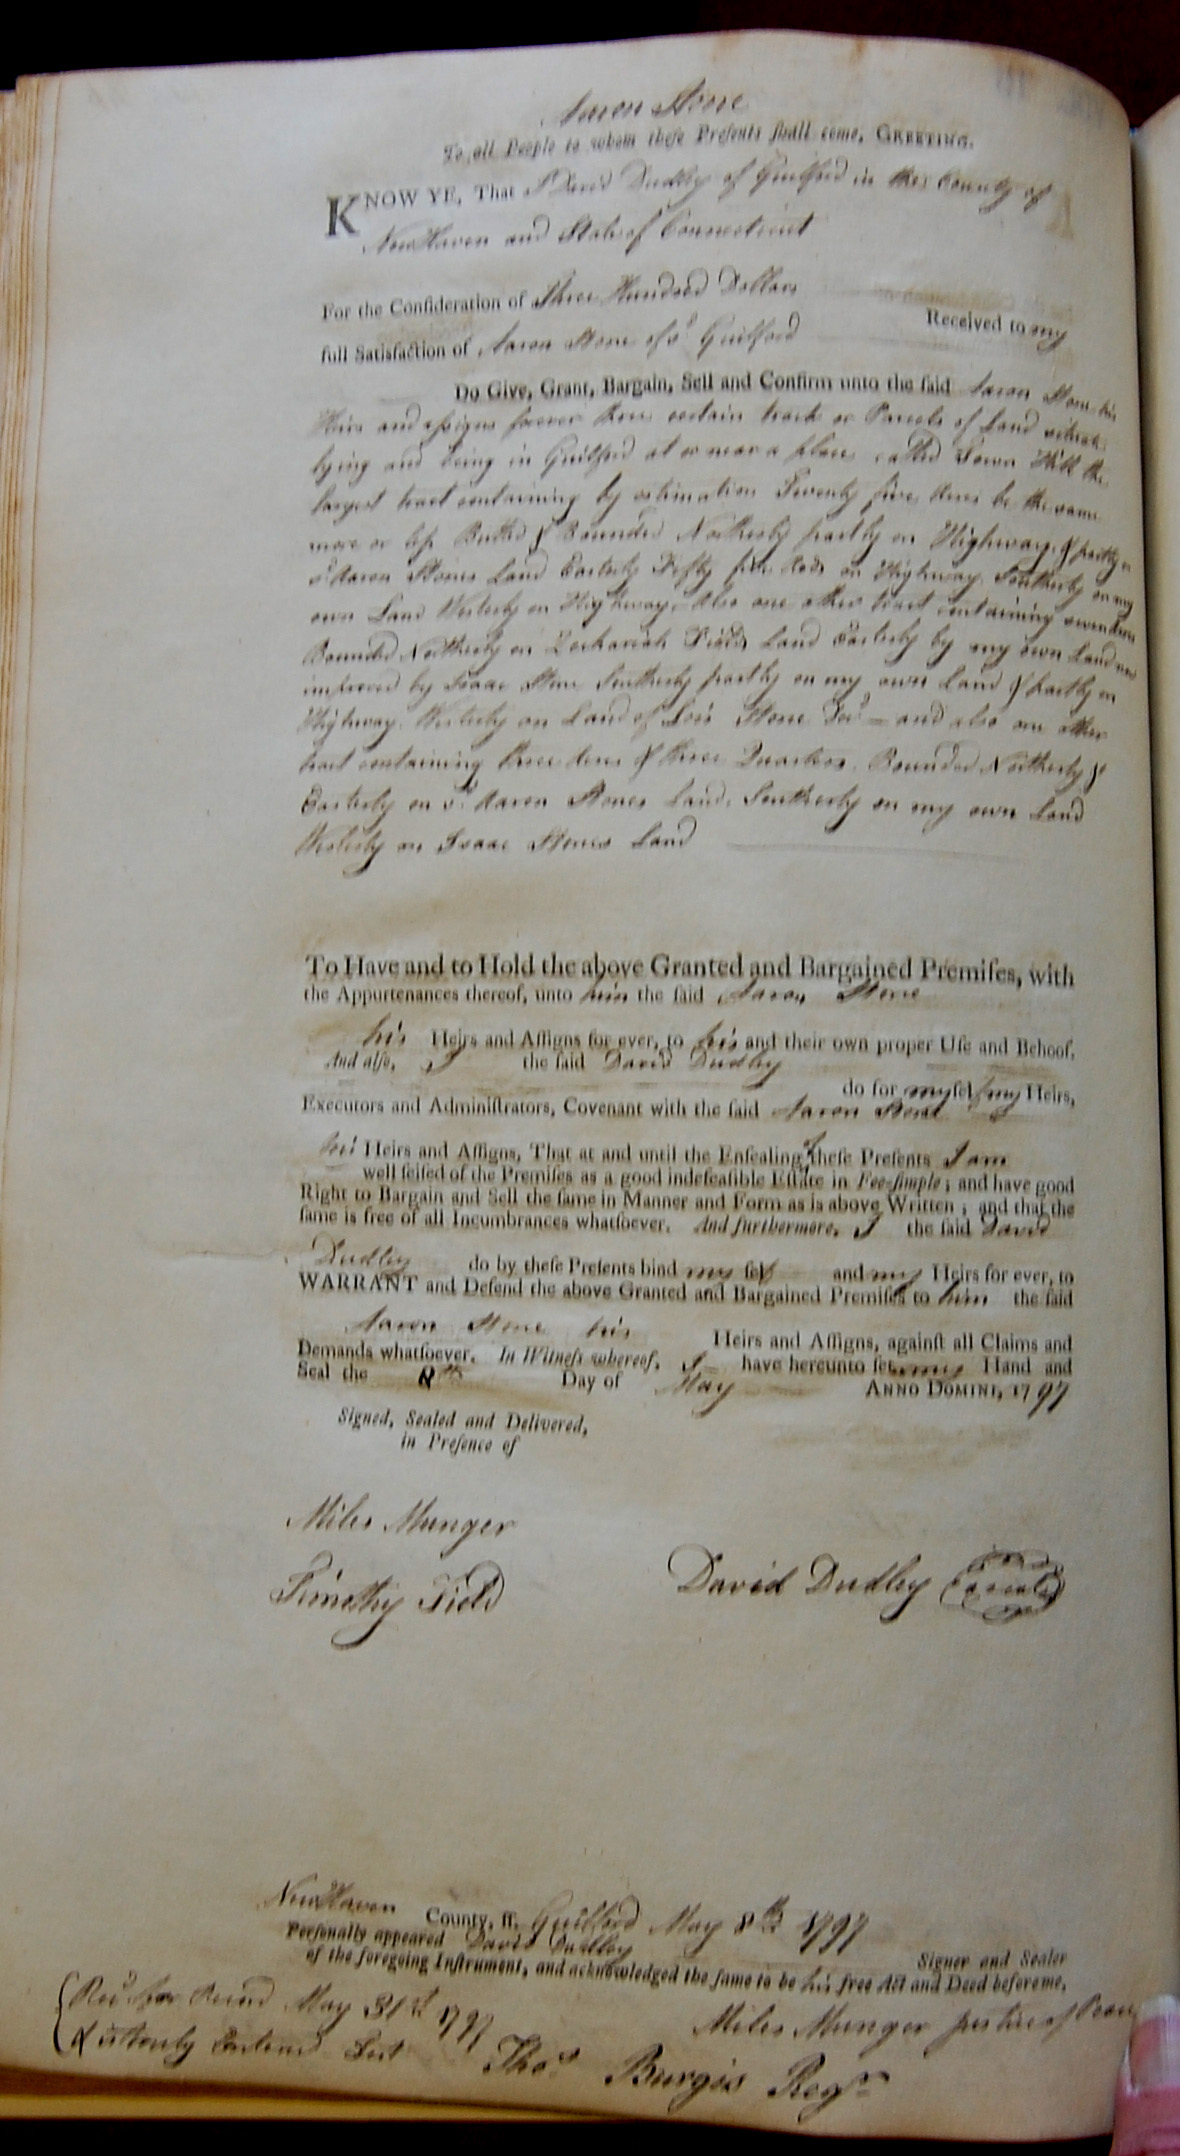 Aaron Stone
To all People to whom theſe Preſents ſhall come, GREETING.
KNOW YE, That I David Dudley of Guilford in the County of
New Haven and State of Connecticut
For the Conſideration of Three Hundred Dollars
Received to my
full Satisfaction of Aaron Stone of sd Guilford
Do Give, Grant, Bargain, Sell and Confirm unto the ſaid Aaron Stone his
Heirs and assigns forever three certain tracts or Parcels of Land situate
lying and being in Guilford at or near a place called Hill the
largest tract containing by estimation Seventy five Acres be the same
more or less Butted & Bounded Northerly partly on Highway & partly on
sd Aaron Stones Land Easterly Fifty five Rods on Highway Southerly on my
own Land Westerly on Highway. Also one other tract containing
Bounded Northerly on Zechariah Fields Land Easterly by my own Land
improved by Isaac Stone Southerly partly on my own Land & partly on
Highway. Westerly on Land of Lois Stone and also one other
tract containing three Acres & three Quarters. Bounded Northerly &
Easterly on sd Aaron Stones Land. Southerly on my own Land
Westerly on Isaac Stones Land
To Have and to Hold the above Granted and Bargained Premiſes, with
the Appurtenances thereof, unto him the ſaid Aaron Stone
his Heirs and Aſſigns for ever, to his and their own proper Uſe and Behoof.
And alſo, I the ſaid David Dudley
do for myſelf my Heirs,
Executors and Adminiſtrators, Covenant with the ſaid Aaron Stone
his Heirs and Aſſigns, That at and until the Enſealing of theſe Preſents I am
well ſeiſed of the Premiſes as a good indefeaſible Eſtate in Fee-ſimple; and have good
Right to Bargain and Sell the ſame in Manner and Form as is above Written; and that the
ſame is free of all Incumbrances whatſoever. And furthermore, I the ſaid David
Dudley do by theſe Preſents bind my ſelf and my Heirs for ever, to
WARRANT and Defend the above Granted and Bargained Premiſes to him the ſaid
Aaron Stone his Heirs and Aſſigns, againſt all Claims and
Demands whatſoever. In Witneſs whereof, I have hereunto ſet my Hand and
Seal the 8th Day of May ANNO DOMINI, 1797
Signed, Sealed and Delivered,
in Preſence of
Miles Munger
Timothy Field
David Dudley a seal
New Haven County, ſſ. Guilford May 8th 1797
Perſonally appeared David Dudley Signer and Sealer
of the foregoing Inſtrument, and acknowledged the ſame to be his free Act and Deed before me,
Miles Munger Justice of Peace
Recd for Record May 31st 1797
& Entered
Thos Burgis Regr